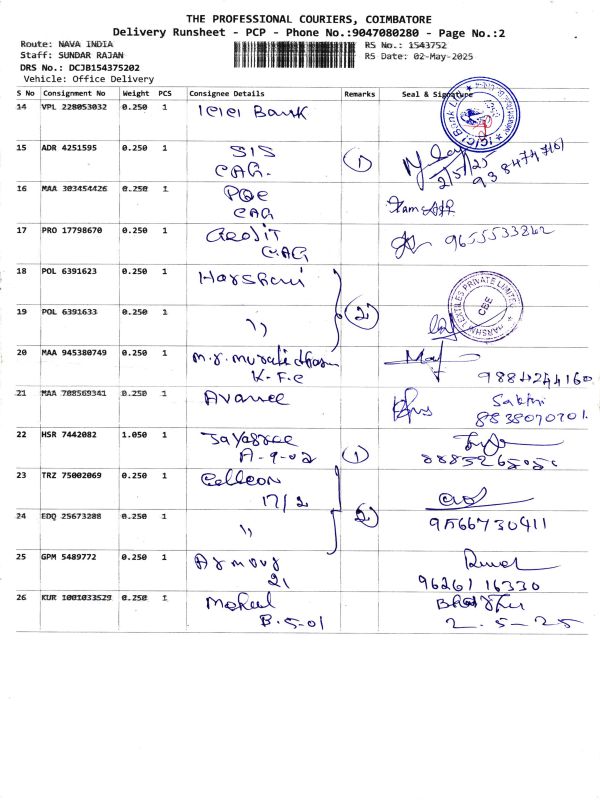 THE PROFESSIONAL COURIERS, COIMBATORE
Delivery Runsheet - PCP - Phone No.:9047080280 - Page No.:2
Route: NAVA INDIA
RS No.: 1543752
Staff: SUNDAR RAJAN
RS Date: 02-May-2025
DRS No.: DCJB154375202
Vehicle: Office Delivery
S No Consignment No Weight PCS Consignee Details Remarks Seal & Signature
14 VPL 228053032 0.250 1 ICICI Bank
15 ADR 4251595 0.250 1 SIS
CAG. 1 2/5/25
16 MAA 303454426 0.250 1
CAG
17 PRO 17798670 0.250 1 Geojit 9655533862
CAG
18 POL 6391623 0.250 1 Harshni
HARSHNI TEXTILES PRIVATE LIMITED
CBE
19 POL 6391633 0.250 1 " 2
20 MAA 945380749 0.250 1 M.S. Muralidharan
K.F.C 9884244160
21 MAA 708569341 0.250 1 Avanee Sakthi
8838070701
22 HSR 7442082 1.050 1 Jayasree
A-9-02 1
23 TRZ 75002069 0.250 1 Cellcon
17/2
24 EDQ 25673288 0.250 1 " 2 9566730411
25 GPM 5489772 0.250 1 Armour
21 9626116330
26 KUR 1001033529 0.250 1
B.5-01 2-5-25